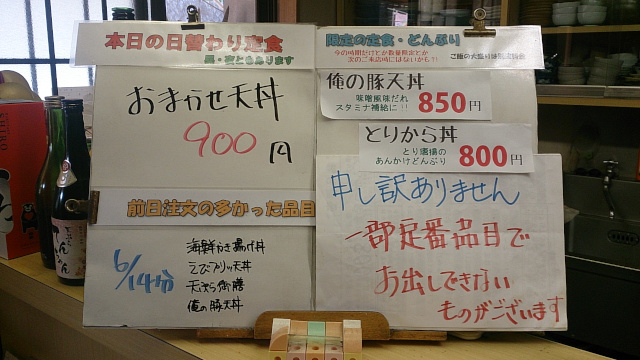 本日の日替わり定食
昼・夜ともあります
おまかせ天丼
900円
前日注文の多かった品目
6/14分
海鮮かき揚げ丼
えびプリッ天丼
天ぷら御膳
俺の豚天丼
限定の定食・どんぶり
今の時期だけとか数量限定とか
次のご来店時にはないかも?!
ご飯の大盛り
俺の豚天丼
味噌風味だれ
スタミナ補給に!!
850円
とりから丼
とり唐揚の
あんかけどんぶり
800円
申し訳ありません
一部定番品目で
お出しできない
ものがございます